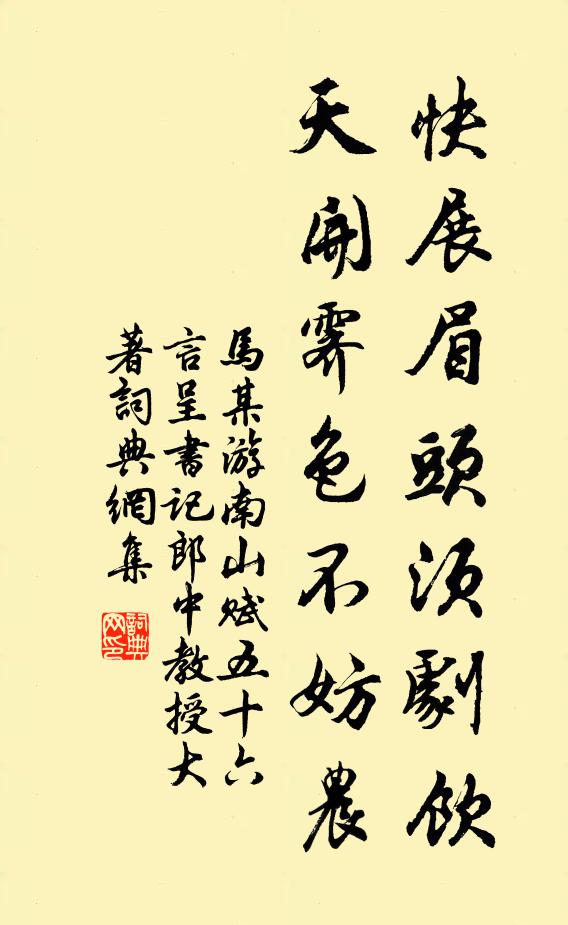 快展眉頭須劇飲
天開霽色不妨農
馬某游南山賦五十六
言呈書記郎中教授大
著詞典網集
詞典網印